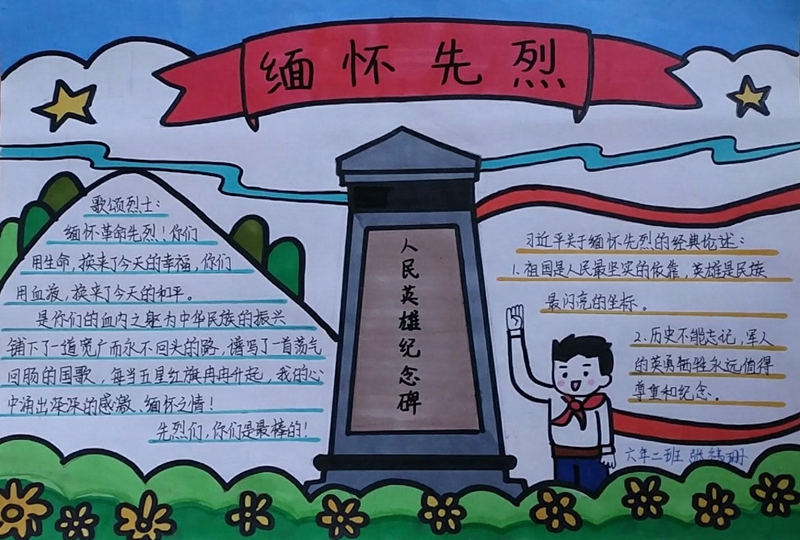 缅怀先烈
歌颂烈士:
缅怀革命先烈!你们
用生命,换来了今天的幸福,你们
用血液,换来了今天的和平。
是你们的血肉之躯为中华民族的振兴
铺下了一道宽广而永不回头的路,谱写了一首荡气
回肠的国歌,每当五星红旗冉冉升起,我的心
中涌出深深的感激、缅怀之情!
先烈们,你们是最棒的!
人民英雄纪念碑
习近平关于缅怀先烈的经典论述:
1.祖国是人民最坚实的依靠,英雄是民族
最闪亮的坐标。
2.历史不能忘记,军人
的英勇牺牲永远值得
尊重和纪念。
六年二班 张